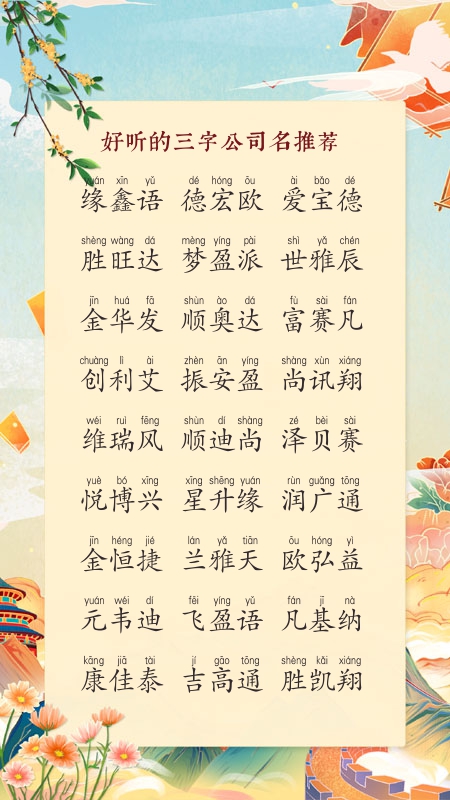 好听的三字公司名推荐
yuán xīn yǔ dé hóng ōu ài bǎo dé
缘鑫语 德宏欧 爱宝德
shèng wàng dá mèng yíng pài shì yǎ chén
胜旺达 梦盈派 世雅辰
jīn huá fā shùn ào dá fù sài fán
金华发 顺奥达 富赛凡
chuàng lì ài zhèn ān yíng shàng xùn xiáng
创利艾 振安盈 尚讯翔
wéi ruì fēng shùn dí shàng zé bèi sài
维瑞风 顺迪尚 泽贝赛
yuè bó xīng xīng shēng yuán rùn guǎng tōng
悦博兴 星升缘 润广通
jīn héng jié lán yǎ tiān ōu hóng yì
金恒捷 兰雅天 欧弘益
yuán wéi dí fēi yíng yǔ fán jī nà
元韦迪 飞盈语 凡基纳
kāng jiā tài jí gāo tōng shèng kǎi xiáng
康佳泰 吉高通 胜凯翔